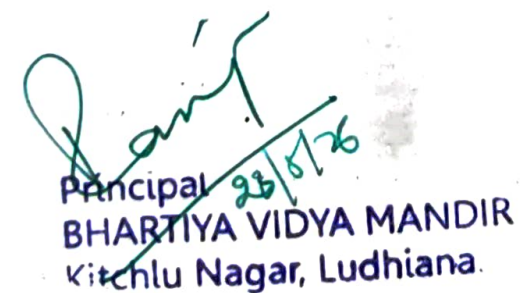 Principal
BHARTIYA VIDYA MANDIR
Kitchlu Nagar, Ludhiana.